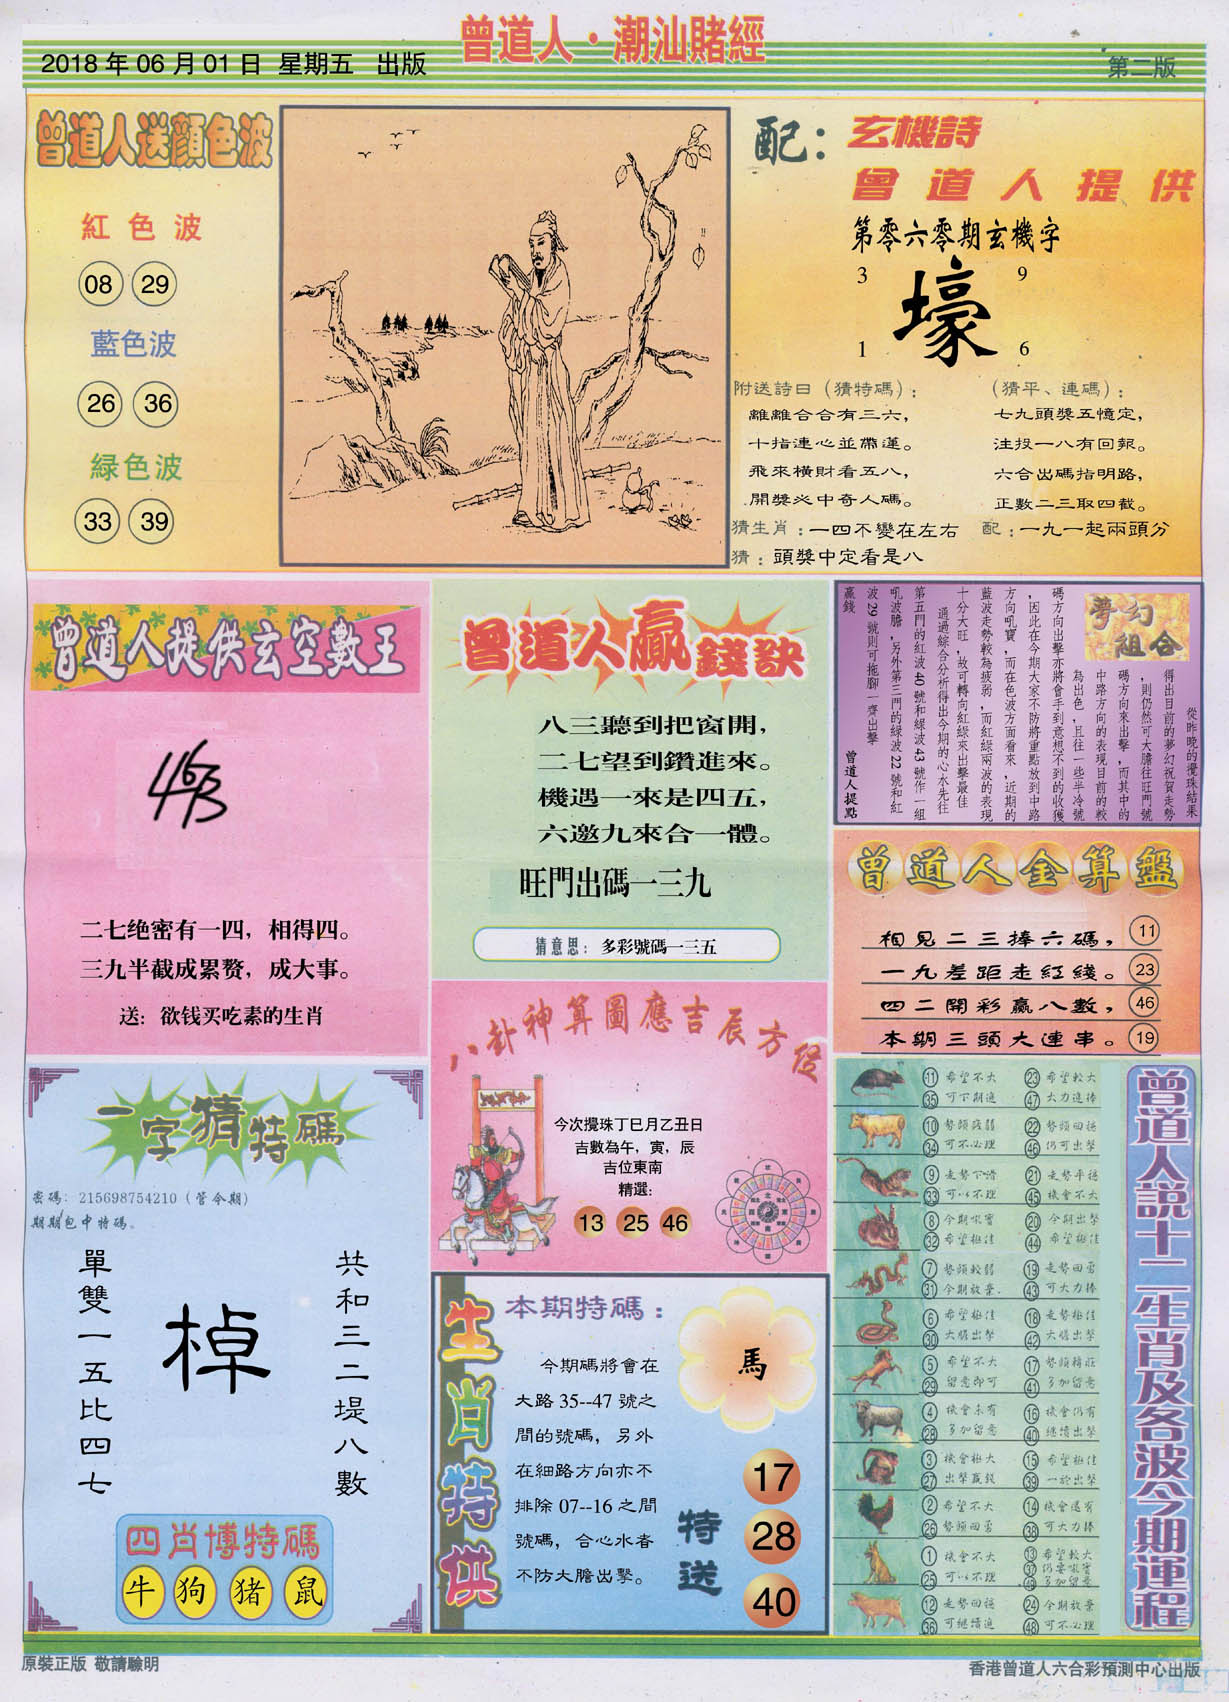 曾道人·潮汕賭經
2018年06月01日 星期五 出版
第二版
曾道人送顏色波
紅色波
08 29
藍色波
26 36
緑色波
33 39
配：玄機詩
曾道人提供
第零六零期玄機字
3 9
壕
1 6
附送詩曰（猜特碼）：
離離合合有三六，
十指連心並帶蓮。
飛來橫財看五八，
開獎必中奇人碼。
（猜平、連碼）：
七九頭獎五憶定，
注投一八有回報。
六合出碼指明路，
正數二三取四截。
猜生肖：一四不變在左右
配：一九一起兩頭分
猜：頭獎中定看是八
曾道人提供玄空數王
463
二七绝密有一四，相得四。
三九半截成累赘，成大事。
送：欲钱买吃素的生肖
曾道人贏錢訣
八三聽到把窗開，
二七望到鑽進來。
機遇一來是四五，
六邀九來合一體。
旺門出碼一三九
猜意思：多彩號碼一三五
夢幻組合
從昨晚的攪珠結果
得出目前的夢幻祝賀走勢
，則仍然可大膽往旺門號
碼方向來出擊，而其中的
中路方向的表現目前的較
為出色，且往一些半冷號
碼方向出擊亦將會手到意想不到的收獲
，因此在今期大家不防將重點放到中路
方向吼寶，而在色波方面看來，近期的
藍波走勢較為疲弱，而紅綠兩波的表現
十分大旺，故可轉向紅綠來出擊最佳
通過綜合分析得出今期的心水先往
第五門的紅波40號和綠波43號作一組
吼波膽，另外第三門的綠波22號和紅
波29號則可拖腳一齊出擊
贏錢
曾道人提點
曾道人金算盤
相見二三捧六碼， 11
一九差距走紅綫。 23
四二開彩贏八數， 46
本期三頭大連串。 19
八卦神算圖應吉辰方位
今次攪珠丁巳月乙丑日
吉數為午，寅，辰
吉位東南
精選：
13 25 46
一字猜特碼
密碼：215698754210（管令期）
期期包中特碼。
單雙一五比四七
棹
共和三二堤八數
四肖博特碼
牛 狗 猪 鼠
生肖特供
本期特碼：
今期碼將會在
大路35--47號之
間的號碼，另外
在細路方向亦不
排除07--16之間
號碼，合心水者
不防大膽出擊。
馬
特送
17
28
40
曾道人説十二生肖及各波今期運程
11 希望不大 23 希望較大
35 可下期進 47 大力進捧
10 勢頭疲弱 22 勢頭回穩
34 可不必理 46 仍可出擊
9 走勢下滑 21 走勢平穩
33 可以不理 45 機會不大
8 今期吼寶 20 今期出擊
32 希望極佳 44 希望極佳
7 勢頭較弱 19 走勢回勇
31 今期放棄 43 可大力捧
6 希望極佳 18 走勢極佳
30 大膽出擊 42 大膽出擊
5 希望不大 17 勢頭轉旺
29 留意即可 41 多加留意
4 機會未有 16 機會仍有
28 多加留意 40 繼續出擊
3 機會極大 15 希望極佳
27 出擊贏錢 39 一於出擊
2 希望不大 14 機會還有
26 勢頭回勇 38 可大力捧
1 機會不大 13 希望較大
25 可以不理 37 仍要吼寶
49 多加留意
12 走勢回穩 24 今期放棄
36 可繼續進 48 可不必理
原裝正版 敬請驗明
香港曾道人六合彩預測中心出版